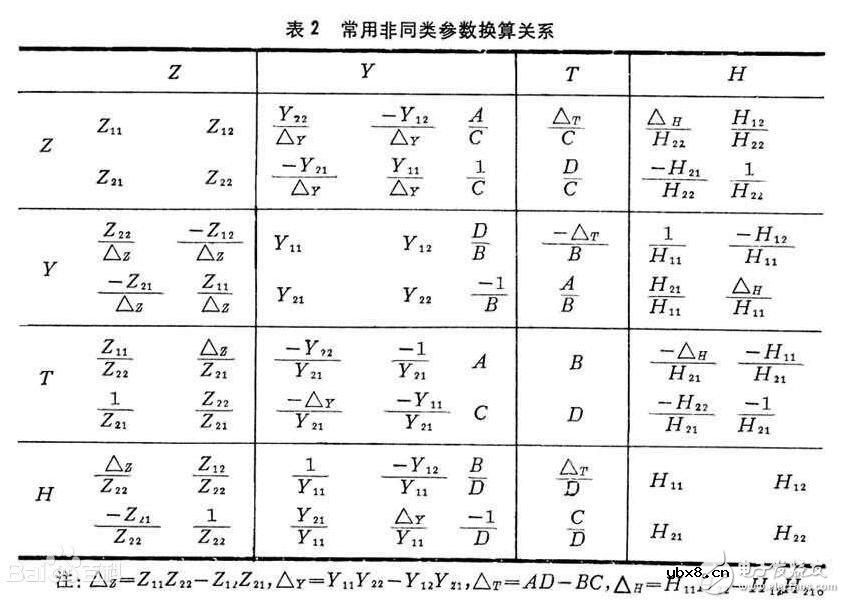 表2 常用非同类参数换算关系
Z Y T H
Z
Z₁₁ Z₁₂ Y₂₂/△Y −Y₁₂/△Y A/C △T/C △H/H₂₂ H₁₂/H₂₂
Z₂₁ Z₂₂ −Y₂₁/△Y Y₁₁/△Y 1/C D/C −H₂₁/H₂₂ 1/H₂₂
Y
Z₂₂/△Z −Z₁₂/△Z Y₁₁ Y₁₂ D/B −△T/B 1/H₁₁ −H₁₂/H₁₁
−Z₂₁/△Z Z₁₁/△Z Y₂₁ Y₂₂ −1/B A/B H₂₁/H₁₁ △H/H₁₁
T
Z₁₁/Z₂₂ △Z/Z₂₁ −Y₂₂/Y₂₁ −1/Y₂₁ A B −△H/H₂₁ −H₁₁/H₂₁
1/Z₂₁ Z₂₂/Z₂₁ −△Y/Y₂₁ −Y₁₁/Y₂₁ C D −H₂₂/H₂₁ −1/H₂₁
H
△Z/Z₂₂ Z₁₂/Z₂₂ 1/Y₁₁ −Y₁₂/Y₁₁ B/D △T/D H₁₁ H₁₂
−Z₂₁/Z₂₂ 1/Z₂₂ Y₂₁/Y₁₁ △Y/Y₁₁ −1/D C/D H₂₁ H₂₂
注:△Z=Z₁₁Z₂₂−Z₁₂Z₂₁,△Y=Y₁₁Y₂₂−Y₁₂Y₂₁,△T=AD−BC,△H=H₁₁−H₁₂H₂₁。
Bai百科
ubx8.cn
电子发烧友